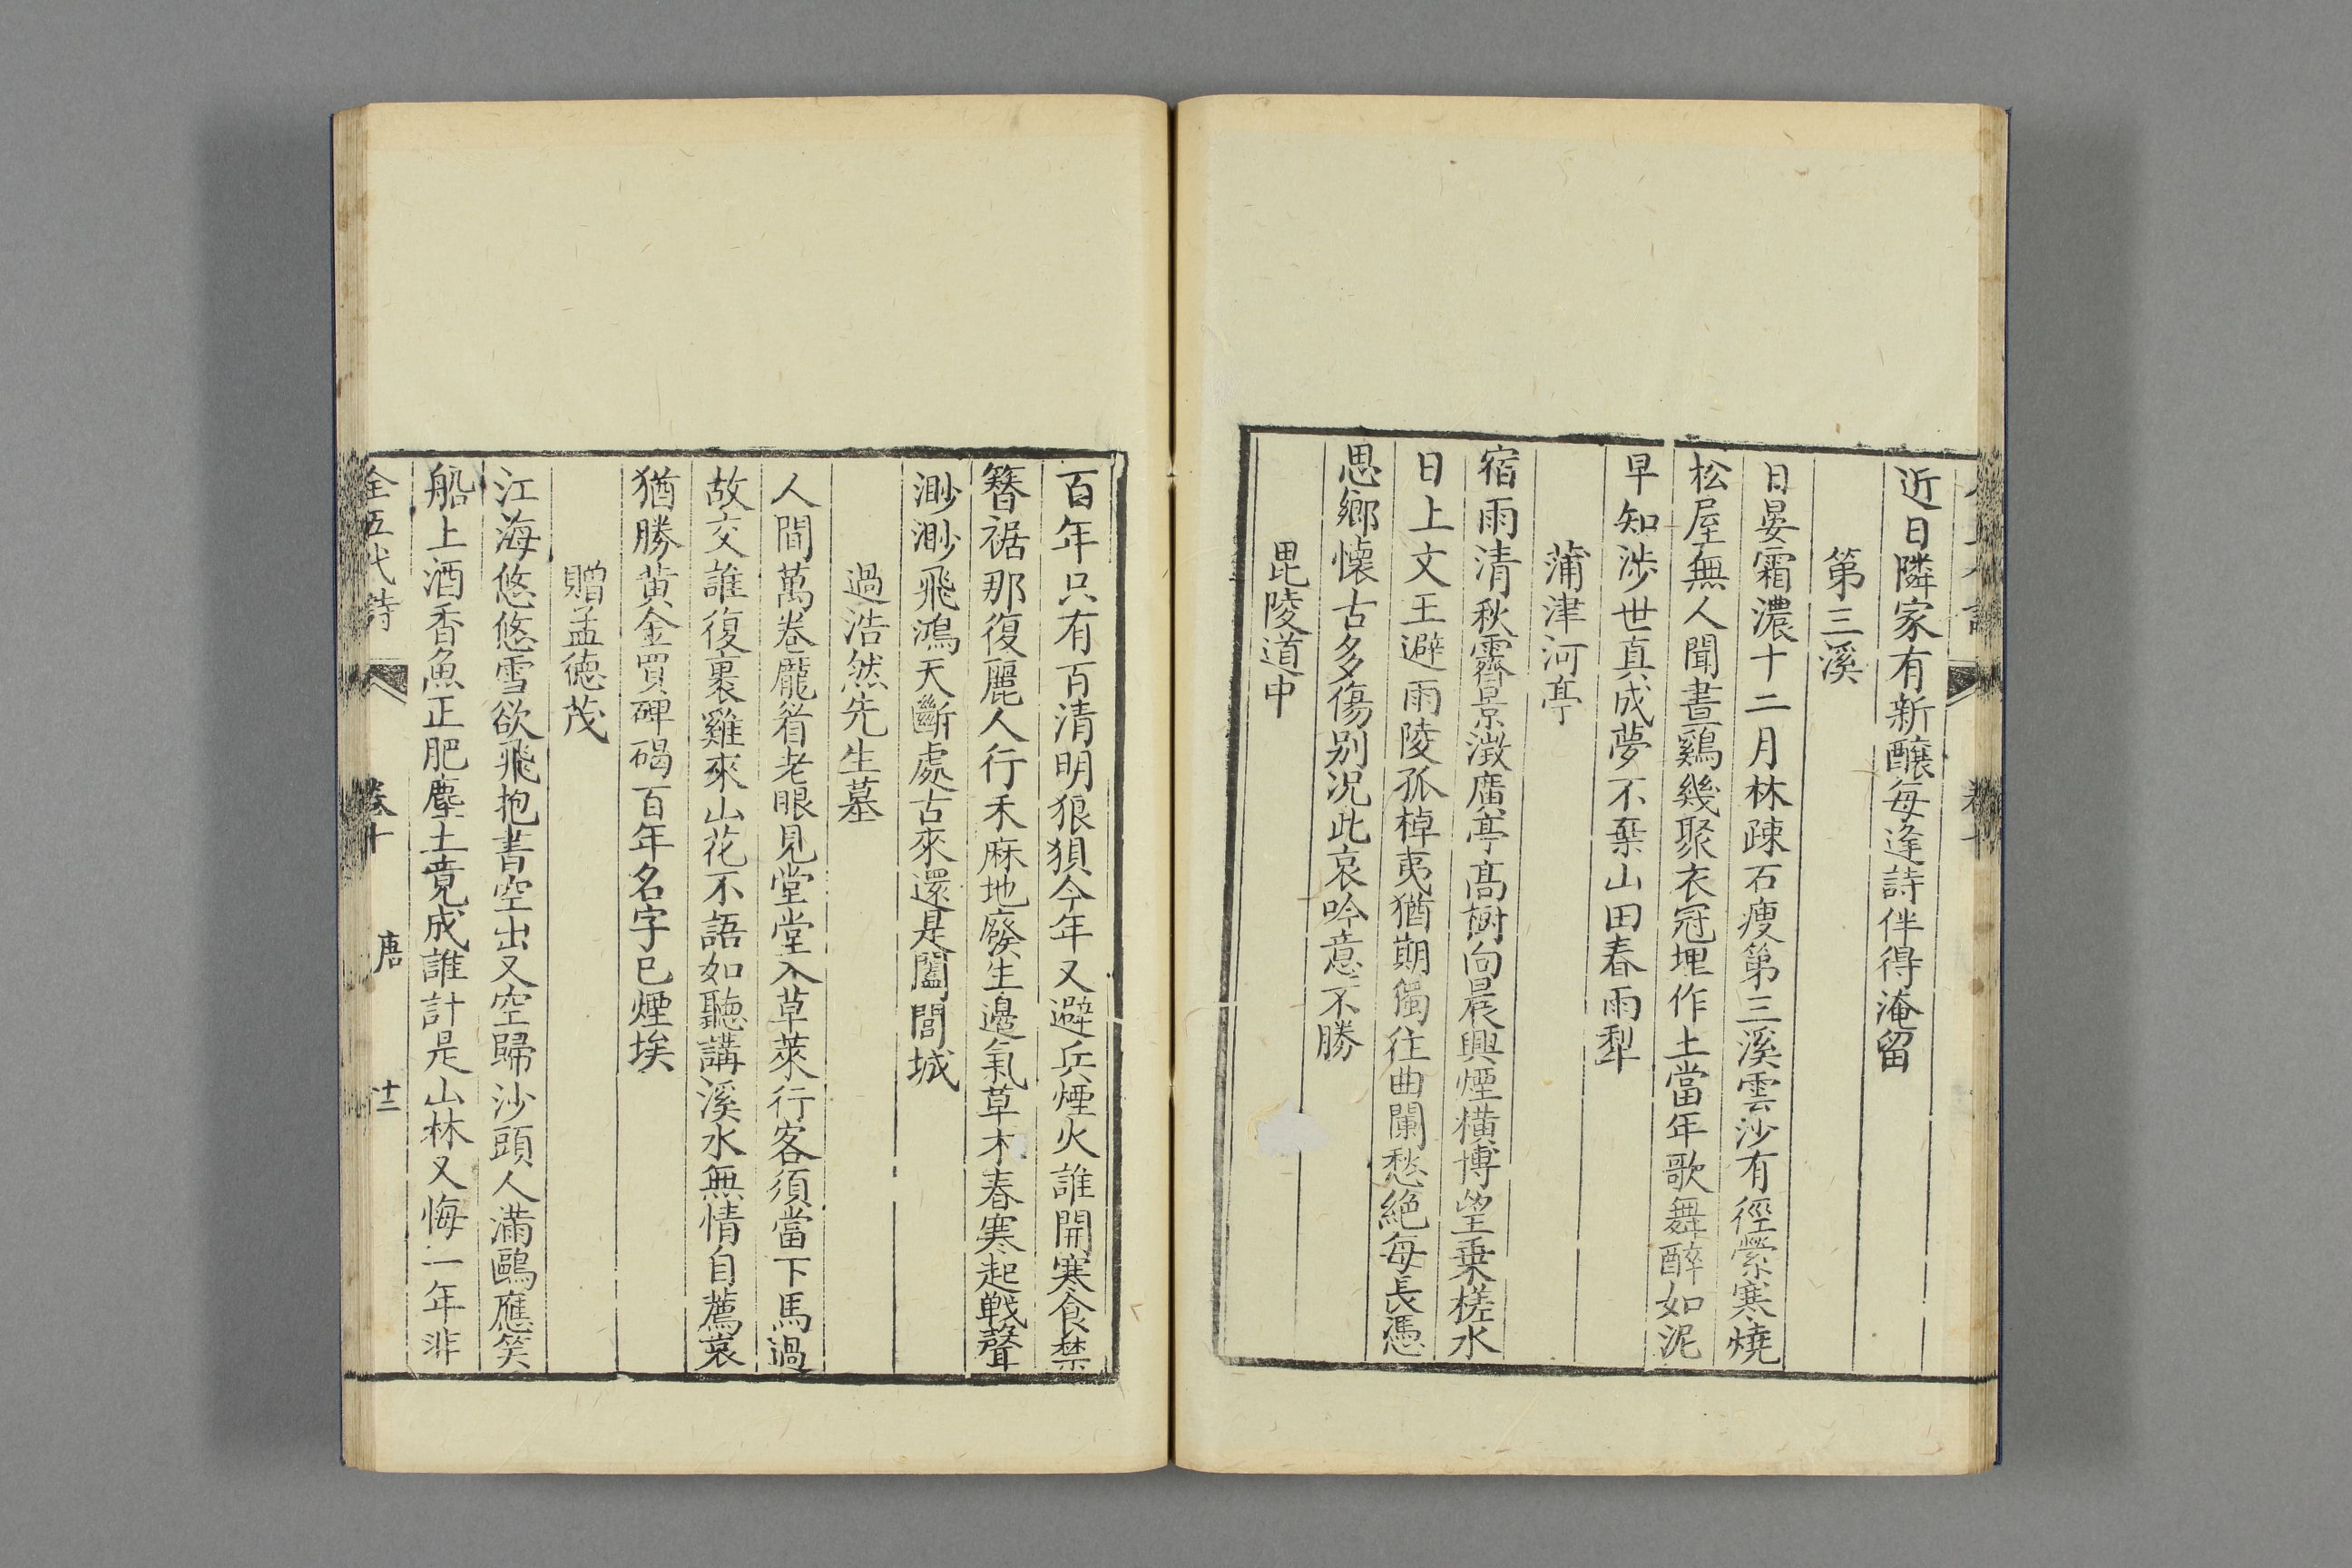 近日隣家有新釀每逢詩伴得淹留
第三溪
日晏霜濃十二月林疎石瘦第三溪雲沙有徑縈寒燒
松屋無人聞晝鷄幾聚衣冠埋作土當年歌舞醉如泥
早知涉世真成夢不棄山田春雨犁
蒲津河亭
宿雨清秋霽景澂廣亭髙樹向晨興煙橫博望乗槎水
日上文王避雨陵孤棹夷猶期獨往曲闌愁絕每長憑
思鄉懐古多傷别况此哀吟意不勝
毘陵道中
百年只有百清明狼狽今年又避兵煙火誰開寒食禁
簪裾那復麗人行禾麻地廢生邉氣草木春寒起戰聲
渺渺飛鴻天斷處古來還是闔閭城
過浩然先生墓
人間萬卷龎眉老眼見堂堂入草萊行客須當下馬過
故交誰復裹雞來山花不語如聽講溪水無情自薦哀
猶勝黄金買碑碣百年名字已煙埃
贈孟徳茂
江海悠悠雪欲飛抱書空出又空歸沙頭人滿鷗應笑
船上酒香魚正肥塵土竟成誰計是山林又悔一年非
全五代詩 卷十 唐 十二